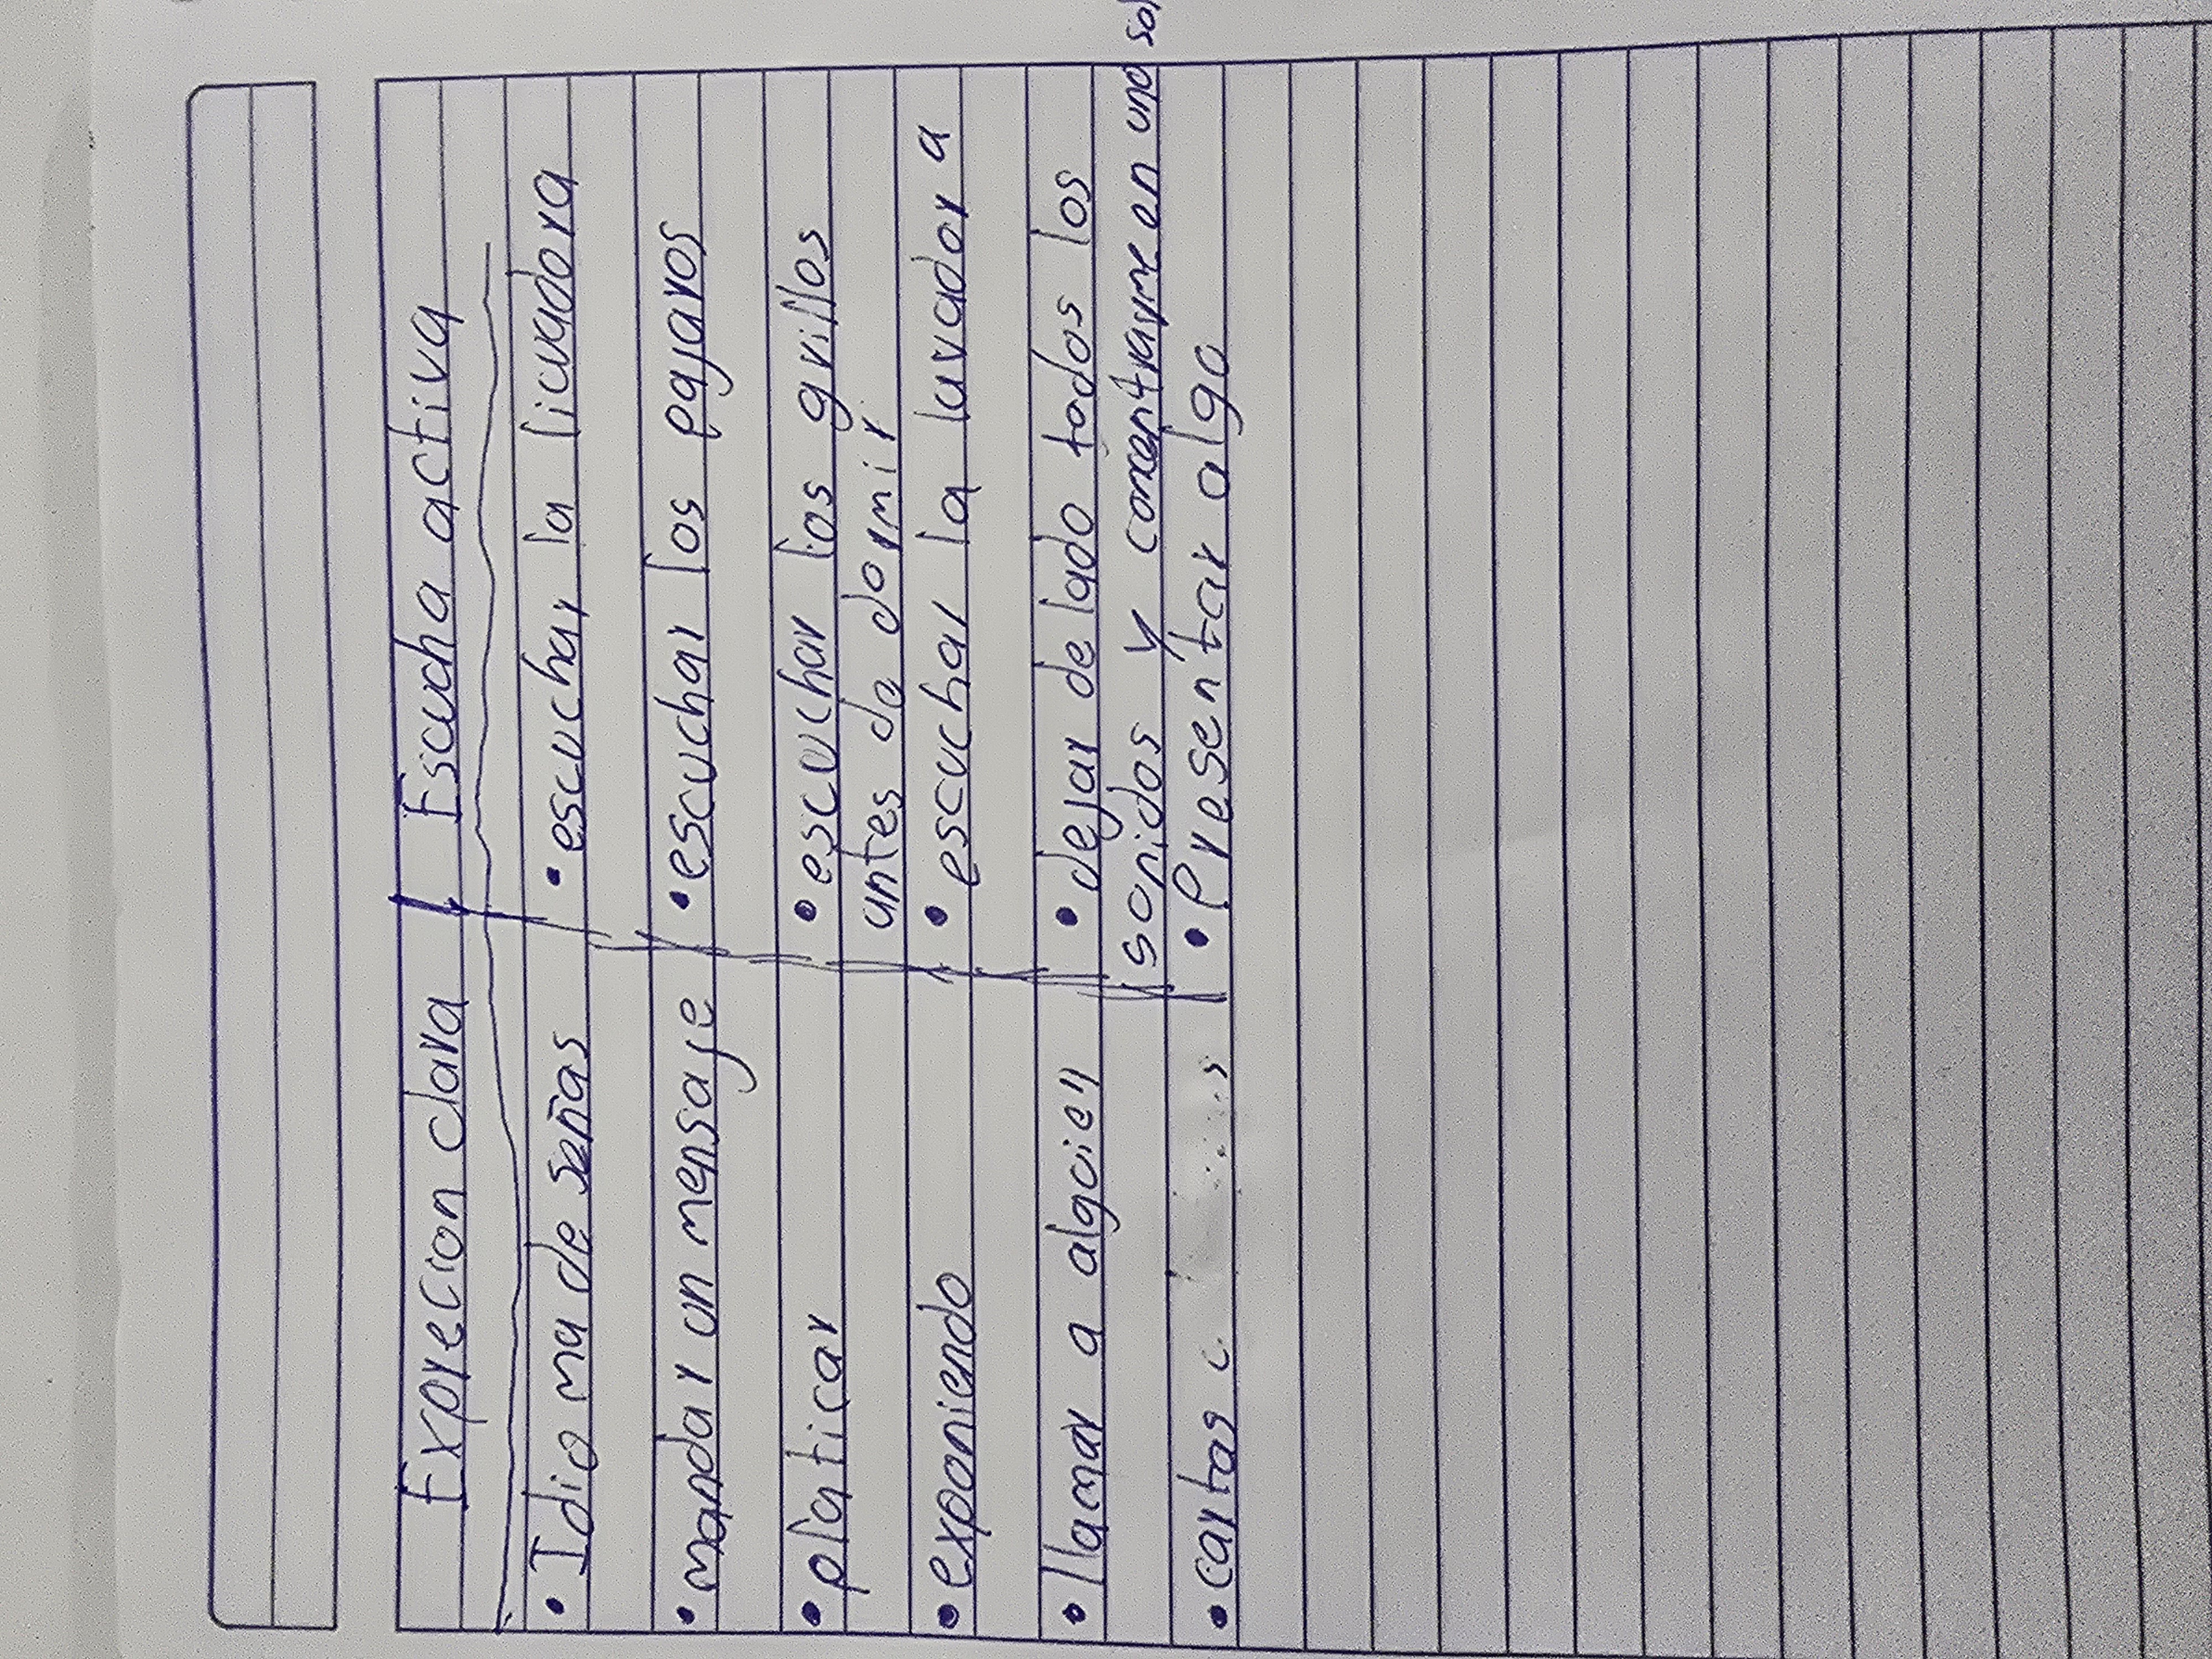 Exprecion clara | Escucha activa
• Idioma de señas • escuchar la licuadora
• mandar un mensaje • escuchar los pajaros
• platicar • escuchar los grillos
antes de dormir
• exponiendo • escuchar la lavadora
• llamar a alguien • dejar de lado todos los
sonidos y concentrarme en uno
• cartas • Presentar algo